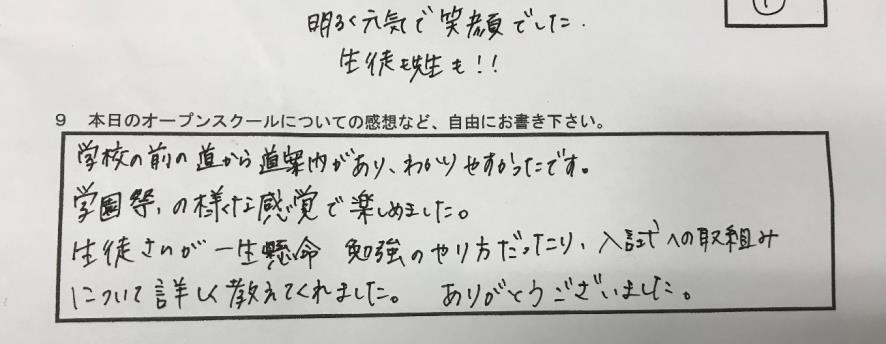 明るく元気で笑顔でした.
生徒も先生も!!
①
9 本日のオープンスクールについての感想など、自由にお書き下さい。
学校の前の道から道案内があり、わかりやすかったです。
学園祭、の様な感覚で楽しめました。
生徒さんが一生懸命 勉強のやり方だったり、入試への取組み
について詳しく教えてくれました。 ありがとうございました。